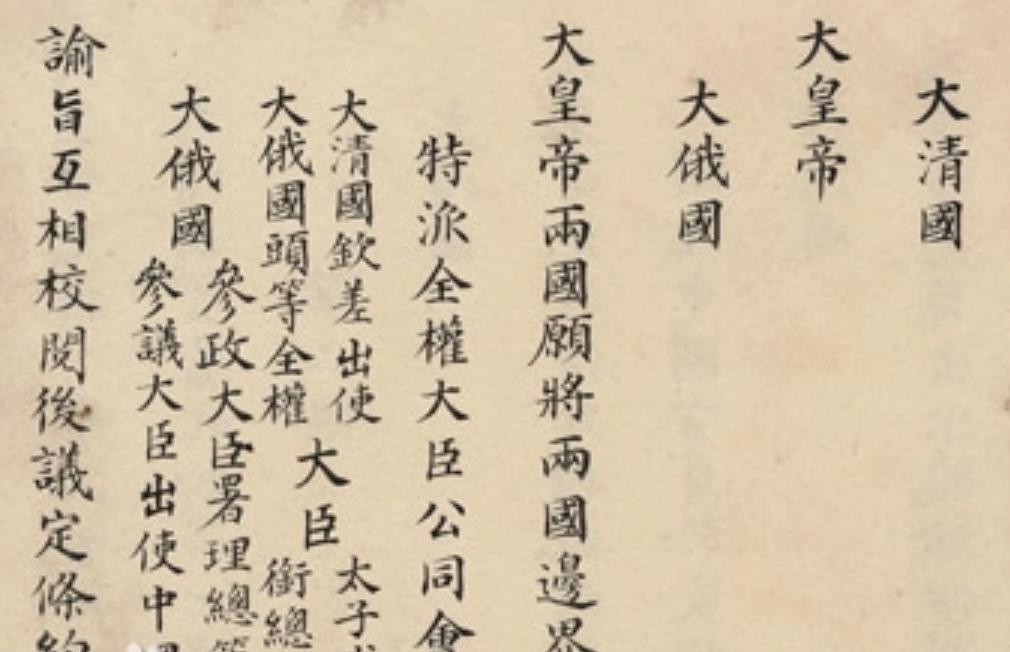 大清國
大皇帝
大俄國
大皇帝兩國願將兩國邊界
特派全權大臣公同會
大清國欽差出使
大俄國頭等全權
大臣
太子
銜總
大俄國
參政大臣署理總
參議大臣出使中
諭旨互相校閱後議定條約